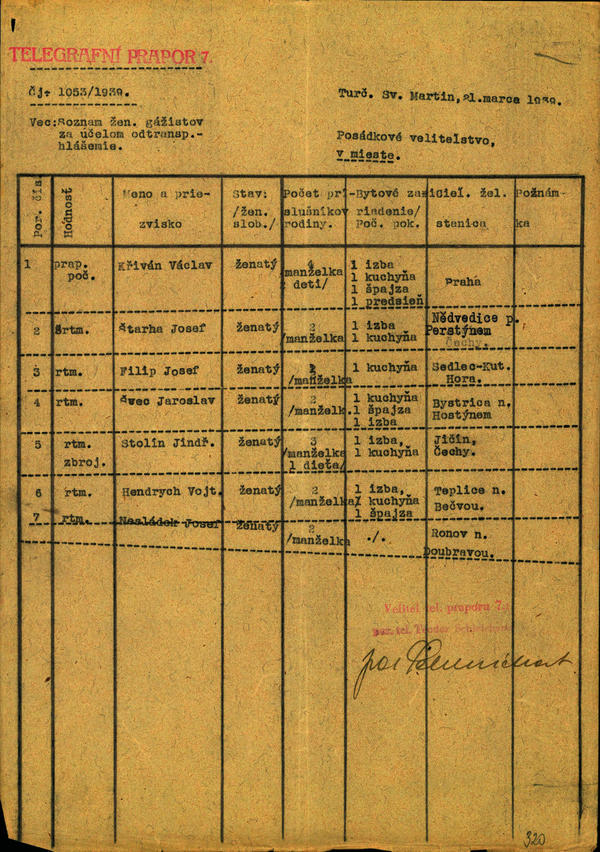 TELEGRAFNÍ PRAPOR 7.
Čj. 1053/1939.
Turč. Sv. Martin, 21.marca 1939.
Vec: Soznam žen. gážistov
za účelom odtransp.-
hlášemie.
Posádkové velitelstvo,
v mieste.
Por. čís.
Hodnosť
Meno a prie-
zvisko
Stav:
/žen.
slob./
Počet prí-
slušníkov
rodiny.
Bytové za-
riadenie/
Poč. pok.
Cieľ. žel.
stanica
Požnám-
ka
1 prap. poč. Křiván Václav ženatý 4 manželka 2 deti/ 1 izba 1 kuchyňa 1 špajza 1 predsieň Praha
2 šrtm. Štarha Josef ženatý 2 /manželka 1 izba 1 kuchyňa Nědvedice p. Perstýnem Čechy.
3 rtm. Filip Josef ženatý /manželka 1 kuchyňa Sedlec-Kut. Hora.
4 rtm. Švec Jaroslav ženatý 2 /manželk. 1 kuchyňa 1 špajza 1 izba Bystrica n. Hostýnem
5 rtm. zbroj. Stolín Jindř. ženatý 3 /manželka 1 dieta/ 1 izba, 1 kuchyňa Jičín, Čechy.
6 rtm. Hendrych Vojt. ženatý 2 /manželka/ 1 izba, 1 kuchyňa 1 špajza Teplice n. Bečvou.
7 rtm. Nesládek Josef ženatý 2 /manželka ./. Ronov n. Doubravou.
Velitel tel. praporu 7.:
por.
320